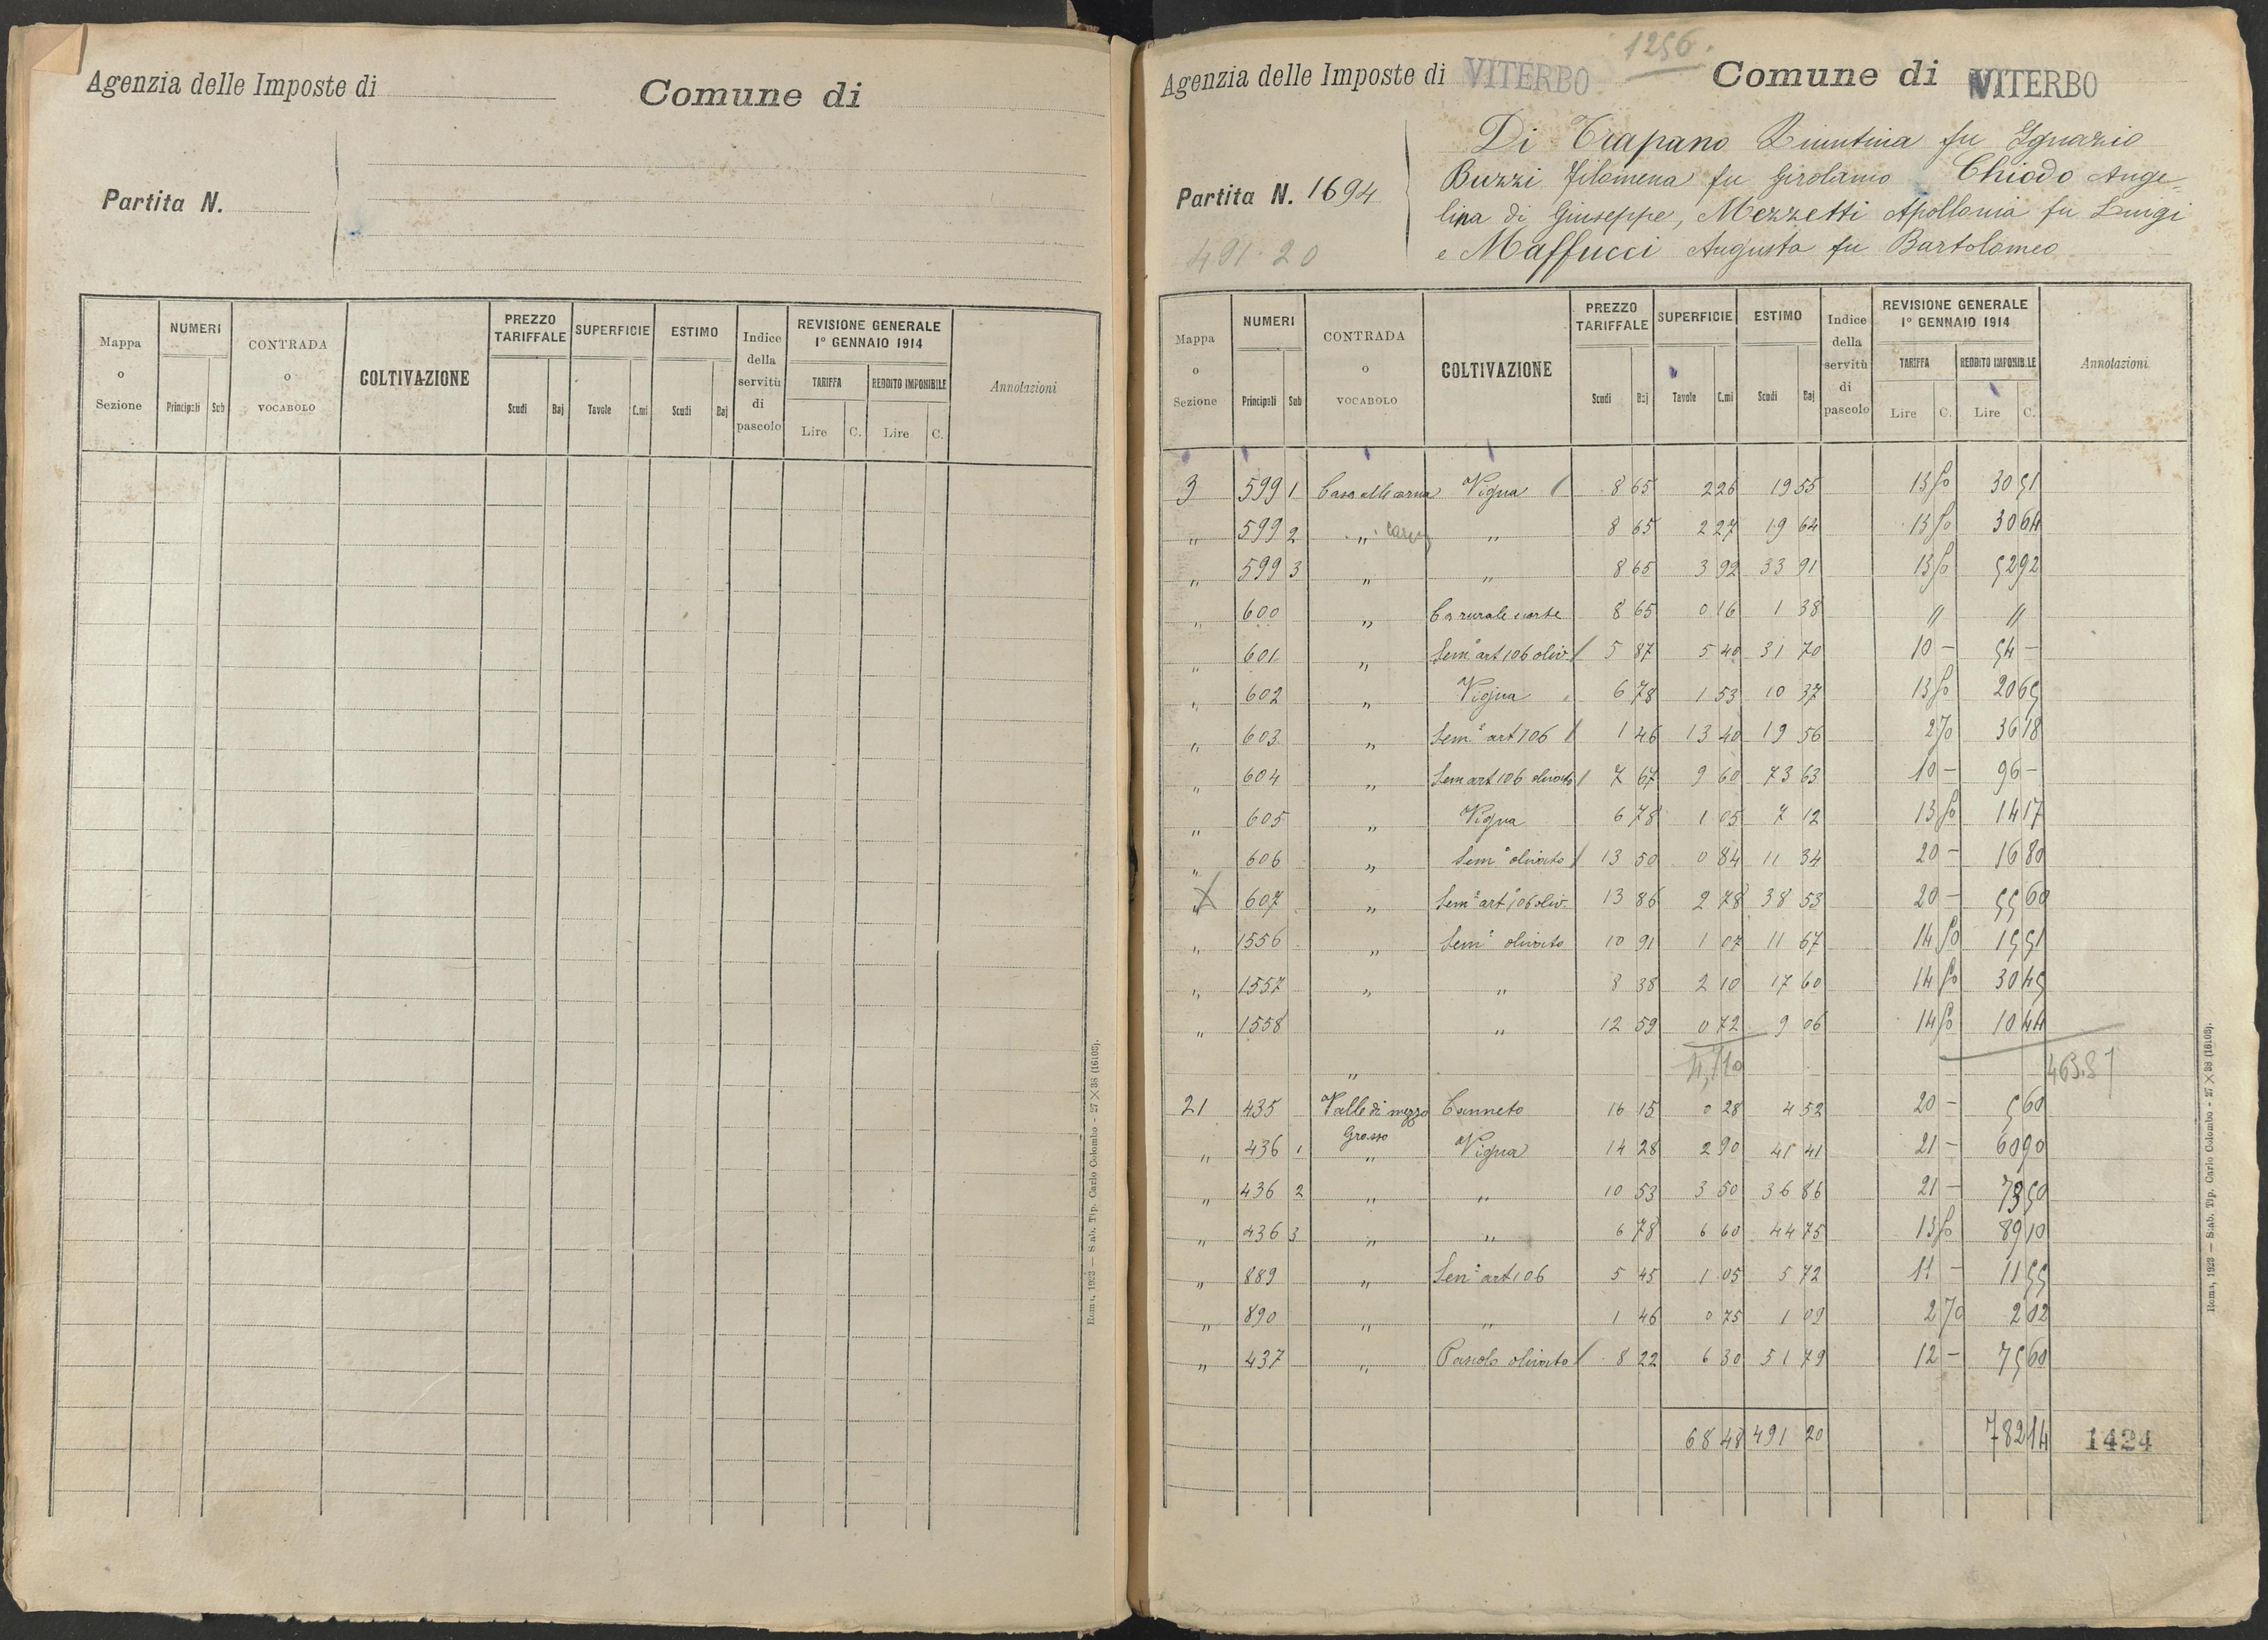 Agenzia delle Imposte di
Comune di
Partita N.
Mappa o Sezione
NUMERI
Principali Sub
CONTRADA o VOCABOLO
COLTIVAZIONE
PREZZO TARIFFALE
Scudi Baj
SUPERFICIE
Tavole C.mi
ESTIMO
Scudi Baj
Indice della servitù di pascolo
REVISIONE GENERALE
1º GENNAIO 1914
TARIFFA
REDDITO IMPONIBILE
Lire C. Lire C.
Annotazioni
Roma, 1923 — Stab. Tip. Carlo Colombo - 27 × 38 (16103).
1256.
Agenzia delle Imposte di VITERBO
Comune di VITERBO
Partita N. 1694
491.20
Di Trapano fu Ignazio
Buzzi Filomena fu Girolamo Chiodo Ange=
lina di Giuseppe, Mezzetti Apollonia fu Luigi
e Maffucci Augusta fu Bartolomeo
Mappa o Sezione
NUMERI
Principali Sub
CONTRADA o VOCABOLO
COLTIVAZIONE
PREZZO TARIFFALE
Scudi Baj
SUPERFICIE
Tavole C.mi
ESTIMO
Scudi Baj
Indice della servitù di pascolo
REVISIONE GENERALE
1º GENNAIO 1914
TARIFFA
REDDITO IMPONIBILE
Lire C. Lire C.
Annotazioni
3 599 1 Casa Vigna 8 65 2 26 19 55 13 50 30 51
" 599 2 " " 8 65 2 27 19 64 13 50 30 64
" 599 3 " " 8 65 3 92 33 91 13 50 52 92
" 600 " Ca rurale e corte 8 65 0 16 1 38 " "
" 601 " Sem° art 106 oliv. 5 87 5 40 31 70 10 - 54 -
" 602 " Vigna 6 78 1 53 10 37 13 50 20 65
" 603 " Sem° art 106 1 46 13 40 19 56 2 70 36 18
" 604 " Sem art 106 olivato 7 67 9 60 73 63 10 - 96 -
" 605 " Vigna 6 78 1 05 7 12 13 50 14 17
" 606 " Sem° olivato 13 50 0 84 11 34 20 - 16 80
" 607 " Sem° art 106 oliv. 13 86 2 78 38 53 20 - 55 60
" 1556 " Sem° olivato 10 91 1 07 11 67 14 50 15 51
" 1557 " " 8 38 2 10 17 60 14 50 30 45
" 1558 " 12 59 0 72 9 06 14 50 10 44
" 463.87
21 435 Valle di mezzo Canneto 16 15 0 28 4 52 20 - 5 60
Grosso
" 436 1 " Vigna 14 28 2 90 41 41 21 - 60 90
" 436 2 " " 10 53 3 50 36 86 21 - 73 50
" 436 3 " " 6 78 6 60 44 75 13 50 89 10
" 889 " Sem° art 106 5 45 1 05 5 72 11 - 11 55
" 890 " " 1 46 0 75 1 09 2 70 2 02
" 437 " Pascolo olivato 8 22 6 30 51 79 12 - 75 60
68 48 491 20 782 14 1424
Roma, 1923 — Stab. Tip. Carlo Colombo - 27 × 38 (16103).